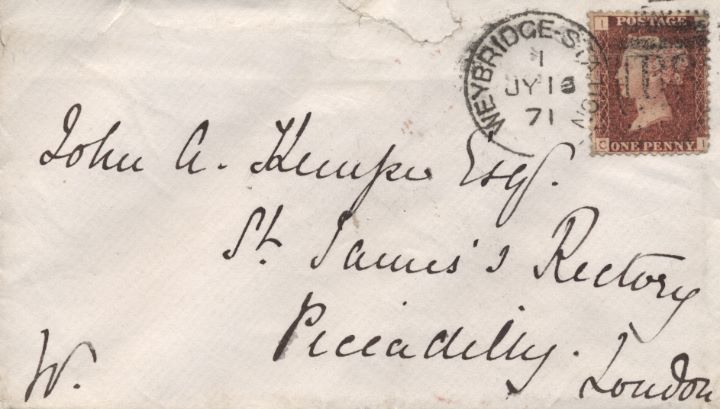 WEYBRIDGE-STATION
1
JY 18
71
I POSTAGE I
C ONE PENNY I
John A. Kempe Esq.
St. James's Rectory
Piccadilly.
W. London